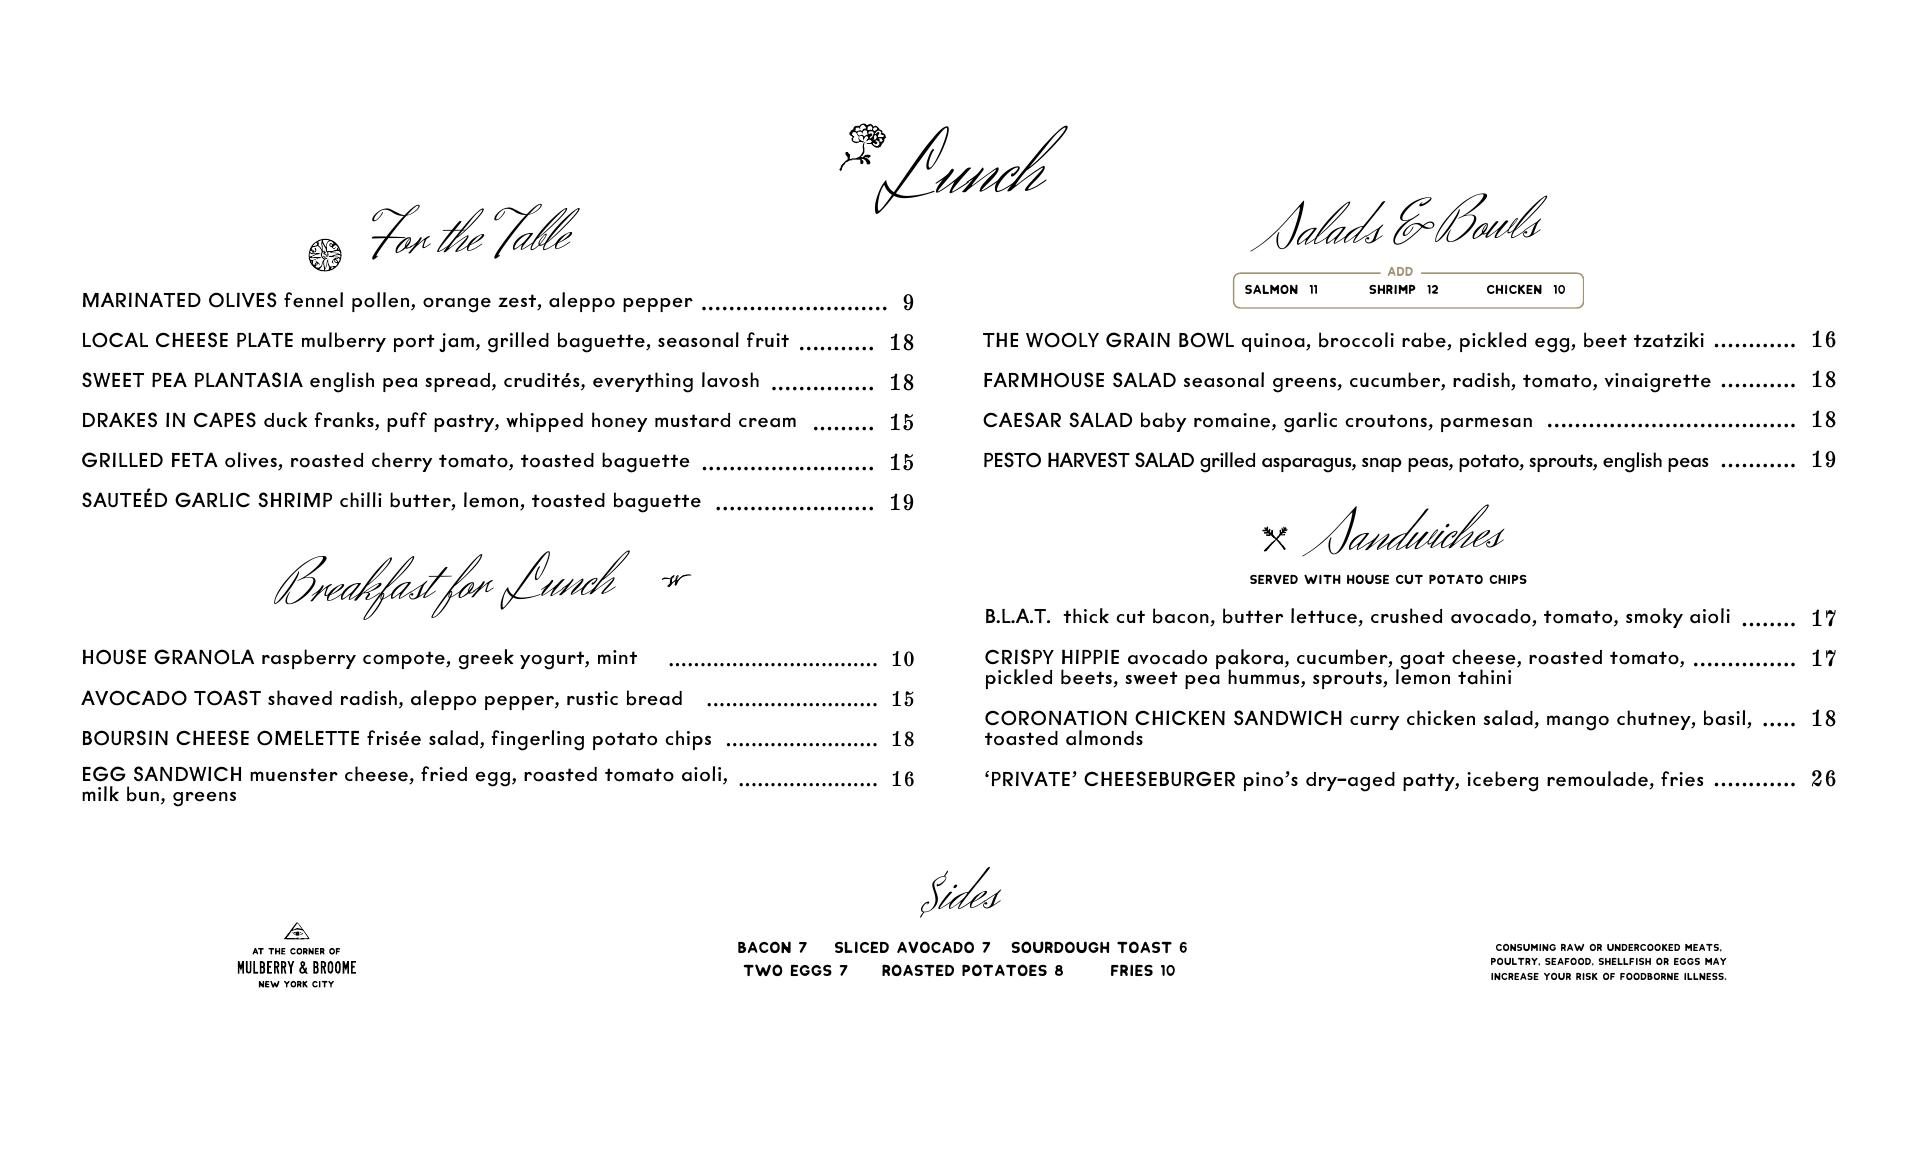 Lunch
For the Table
MARINATED OLIVES fennel pollen, orange zest, aleppo pepper .......................... 9
LOCAL CHEESE PLATE mulberry port jam, grilled baguette, seasonal fruit ........... 18
SWEET PEA PLANTASIA english pea spread, crudités, everything lavosh ............... 18
DRAKES IN CAPES duck franks, puff pastry, whipped honey mustard cream ......... 15
GRILLED FETA olives, roasted cherry tomato, toasted baguette ......................... 15
SAUTEÉD GARLIC SHRIMP chilli butter, lemon, toasted baguette ....................... 19
Breakfast for Lunch
HOUSE GRANOLA raspberry compote, greek yogurt, mint ................................. 10
AVOCADO TOAST shaved radish, aleppo pepper, rustic bread ........................... 15
BOURSIN CHEESE OMELETTE frisée salad, fingerling potato chips ........................ 18
EGG SANDWICH muenster cheese, fried egg, roasted tomato aioli, ...................... 16
milk bun, greens
Salads & Bowls
ADD
SALMON 11 SHRIMP 12 CHICKEN 10
THE WOOLY GRAIN BOWL quinoa, broccoli rabe, pickled egg, beet tzatziki ............ 16
FARMHOUSE SALAD seasonal greens, cucumber, radish, tomato, vinaigrette ........... 18
CAESAR SALAD baby romaine, garlic croutons, parmesan .................................... 18
PESTO HARVEST SALAD grilled asparagus, snap peas, potato, sprouts, english peas ........... 19
Sandwiches
SERVED WITH HOUSE CUT POTATO CHIPS
B.L.A.T. thick cut bacon, butter lettuce, crushed avocado, tomato, smoky aioli ........ 17
CRISPY HIPPIE avocado pakora, cucumber, goat cheese, roasted tomato, ............... 17
pickled beets, sweet pea hummus, sprouts, lemon tahini
CORONATION CHICKEN SANDWICH curry chicken salad, mango chutney, basil, ..... 18
toasted almonds
‘PRIVATE’ CHEESEBURGER pino’s dry-aged patty, iceberg remoulade, fries ............ 26
Sides
BACON 7 SLICED AVOCADO 7 SOURDOUGH TOAST 6
TWO EGGS 7 ROASTED POTATOES 8 FRIES 10
AT THE CORNER OF
MULBERRY & BROOME
NEW YORK CITY
CONSUMING RAW OR UNDERCOOKED MEATS,
POULTRY, SEAFOOD, SHELLFISH OR EGGS MAY
INCREASE YOUR RISK OF FOODBORNE ILLNESS.